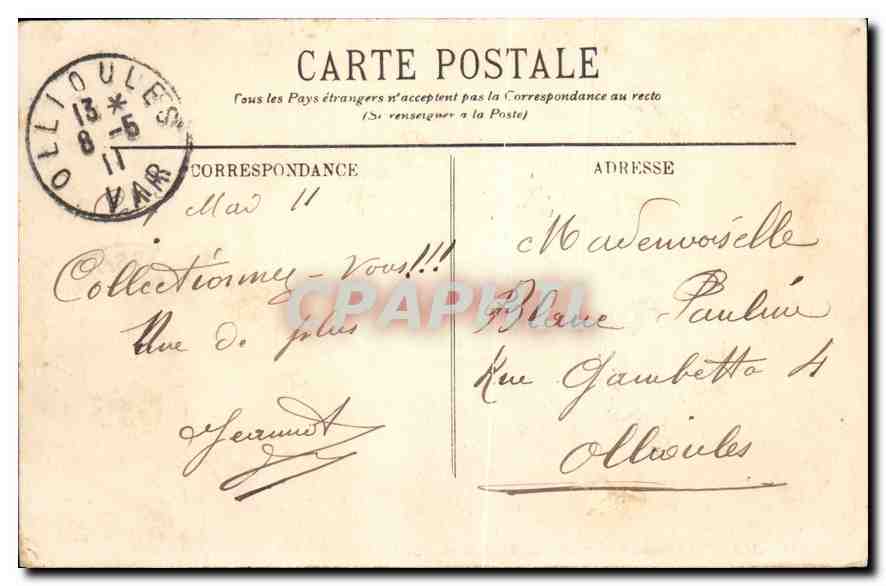 CARTE POSTALE
Tous les Pays étrangers n'acceptent pas la Correspondance au recto
(Se renseigner à la Poste)
OLLIOULES
13 *
8 -5
11
VAR
CORRESPONDANCE
Mai 11
Collectionnez-vous!!!
Une de plus
Jeannot
ADRESSE
Mademoiselle
Blanc Pauline
Rue Gambetta 4
Ollioules
CPAPHIL